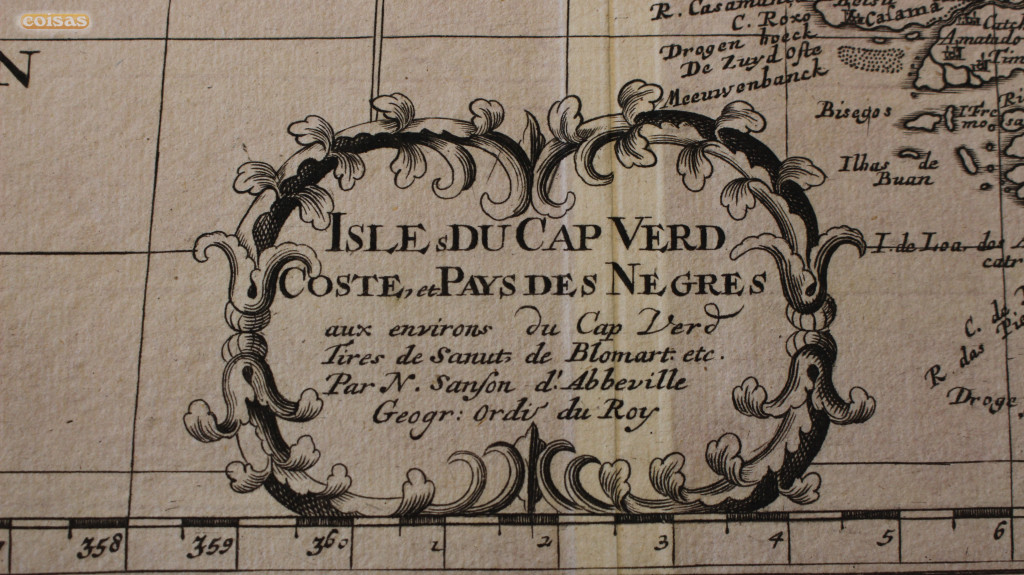 coisas
N
R. Casaman
C. Roxo
Drogen hoeck
De Zuyd Oste
Meeuwenbanck
Caiama
Catch
Amatado
Tim
Bisegos
I Fre
moo
Ri
Ilhas de
Buan
ISLEs DU CAP VERD
COSTE, et PAYS DES NEGRES
aux environs du Cap Verd
Tires de Sanut, de Blomart. etc.
Par N. Sanson d'Abbeville
Geogr: Ordis du Roy
I. de Loa. dos
catr
C. de
R das Pi
Droge
358 359 360 1 2 3 4 5 6